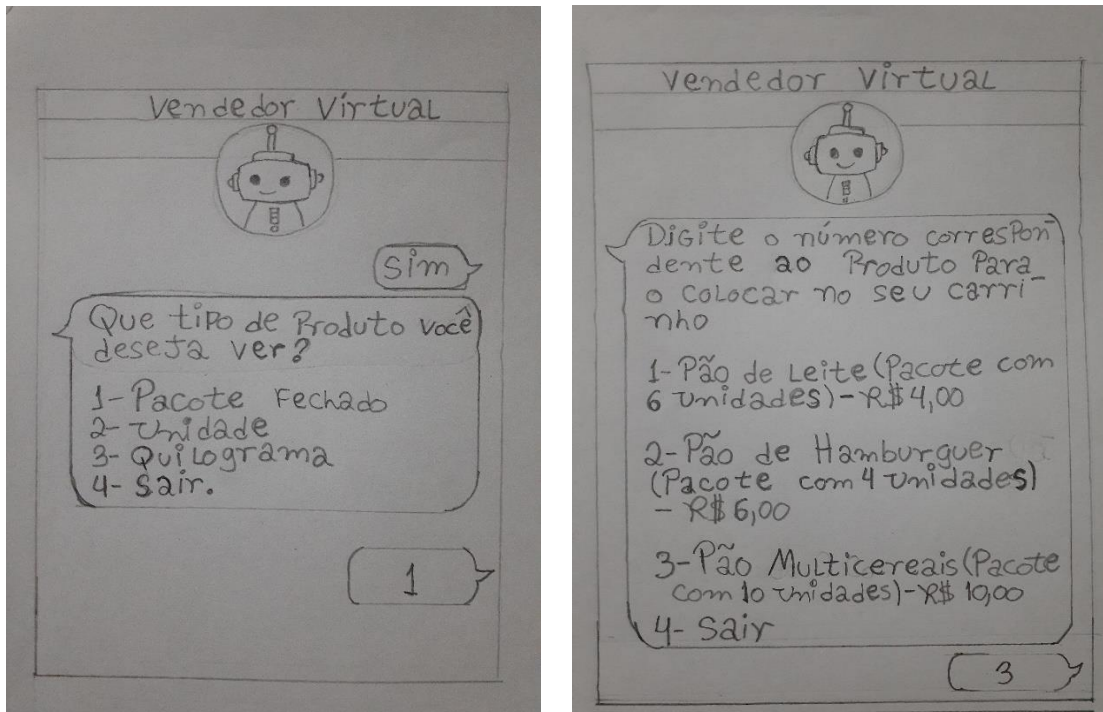 Vendedor Virtual
Sim
Que tipo de Produto você
deseja ver?
1- Pacote Fechado
2- Unidade
3- Quilograma
4- Sair.
1
Vendedor Virtual
Digite o número correspon
dente ao Produto Para
o colocar no seu carri-
nho
1- Pão de Leite (Pacote com
6 Unidades) - R$ 4,00
2- Pão de Hamburguer
(Pacote com 4 Unidades)
- R$ 6,00
3- Pão Multicereais (Pacote
com 10 Unidades) - R$ 10,00
4- Sair
3